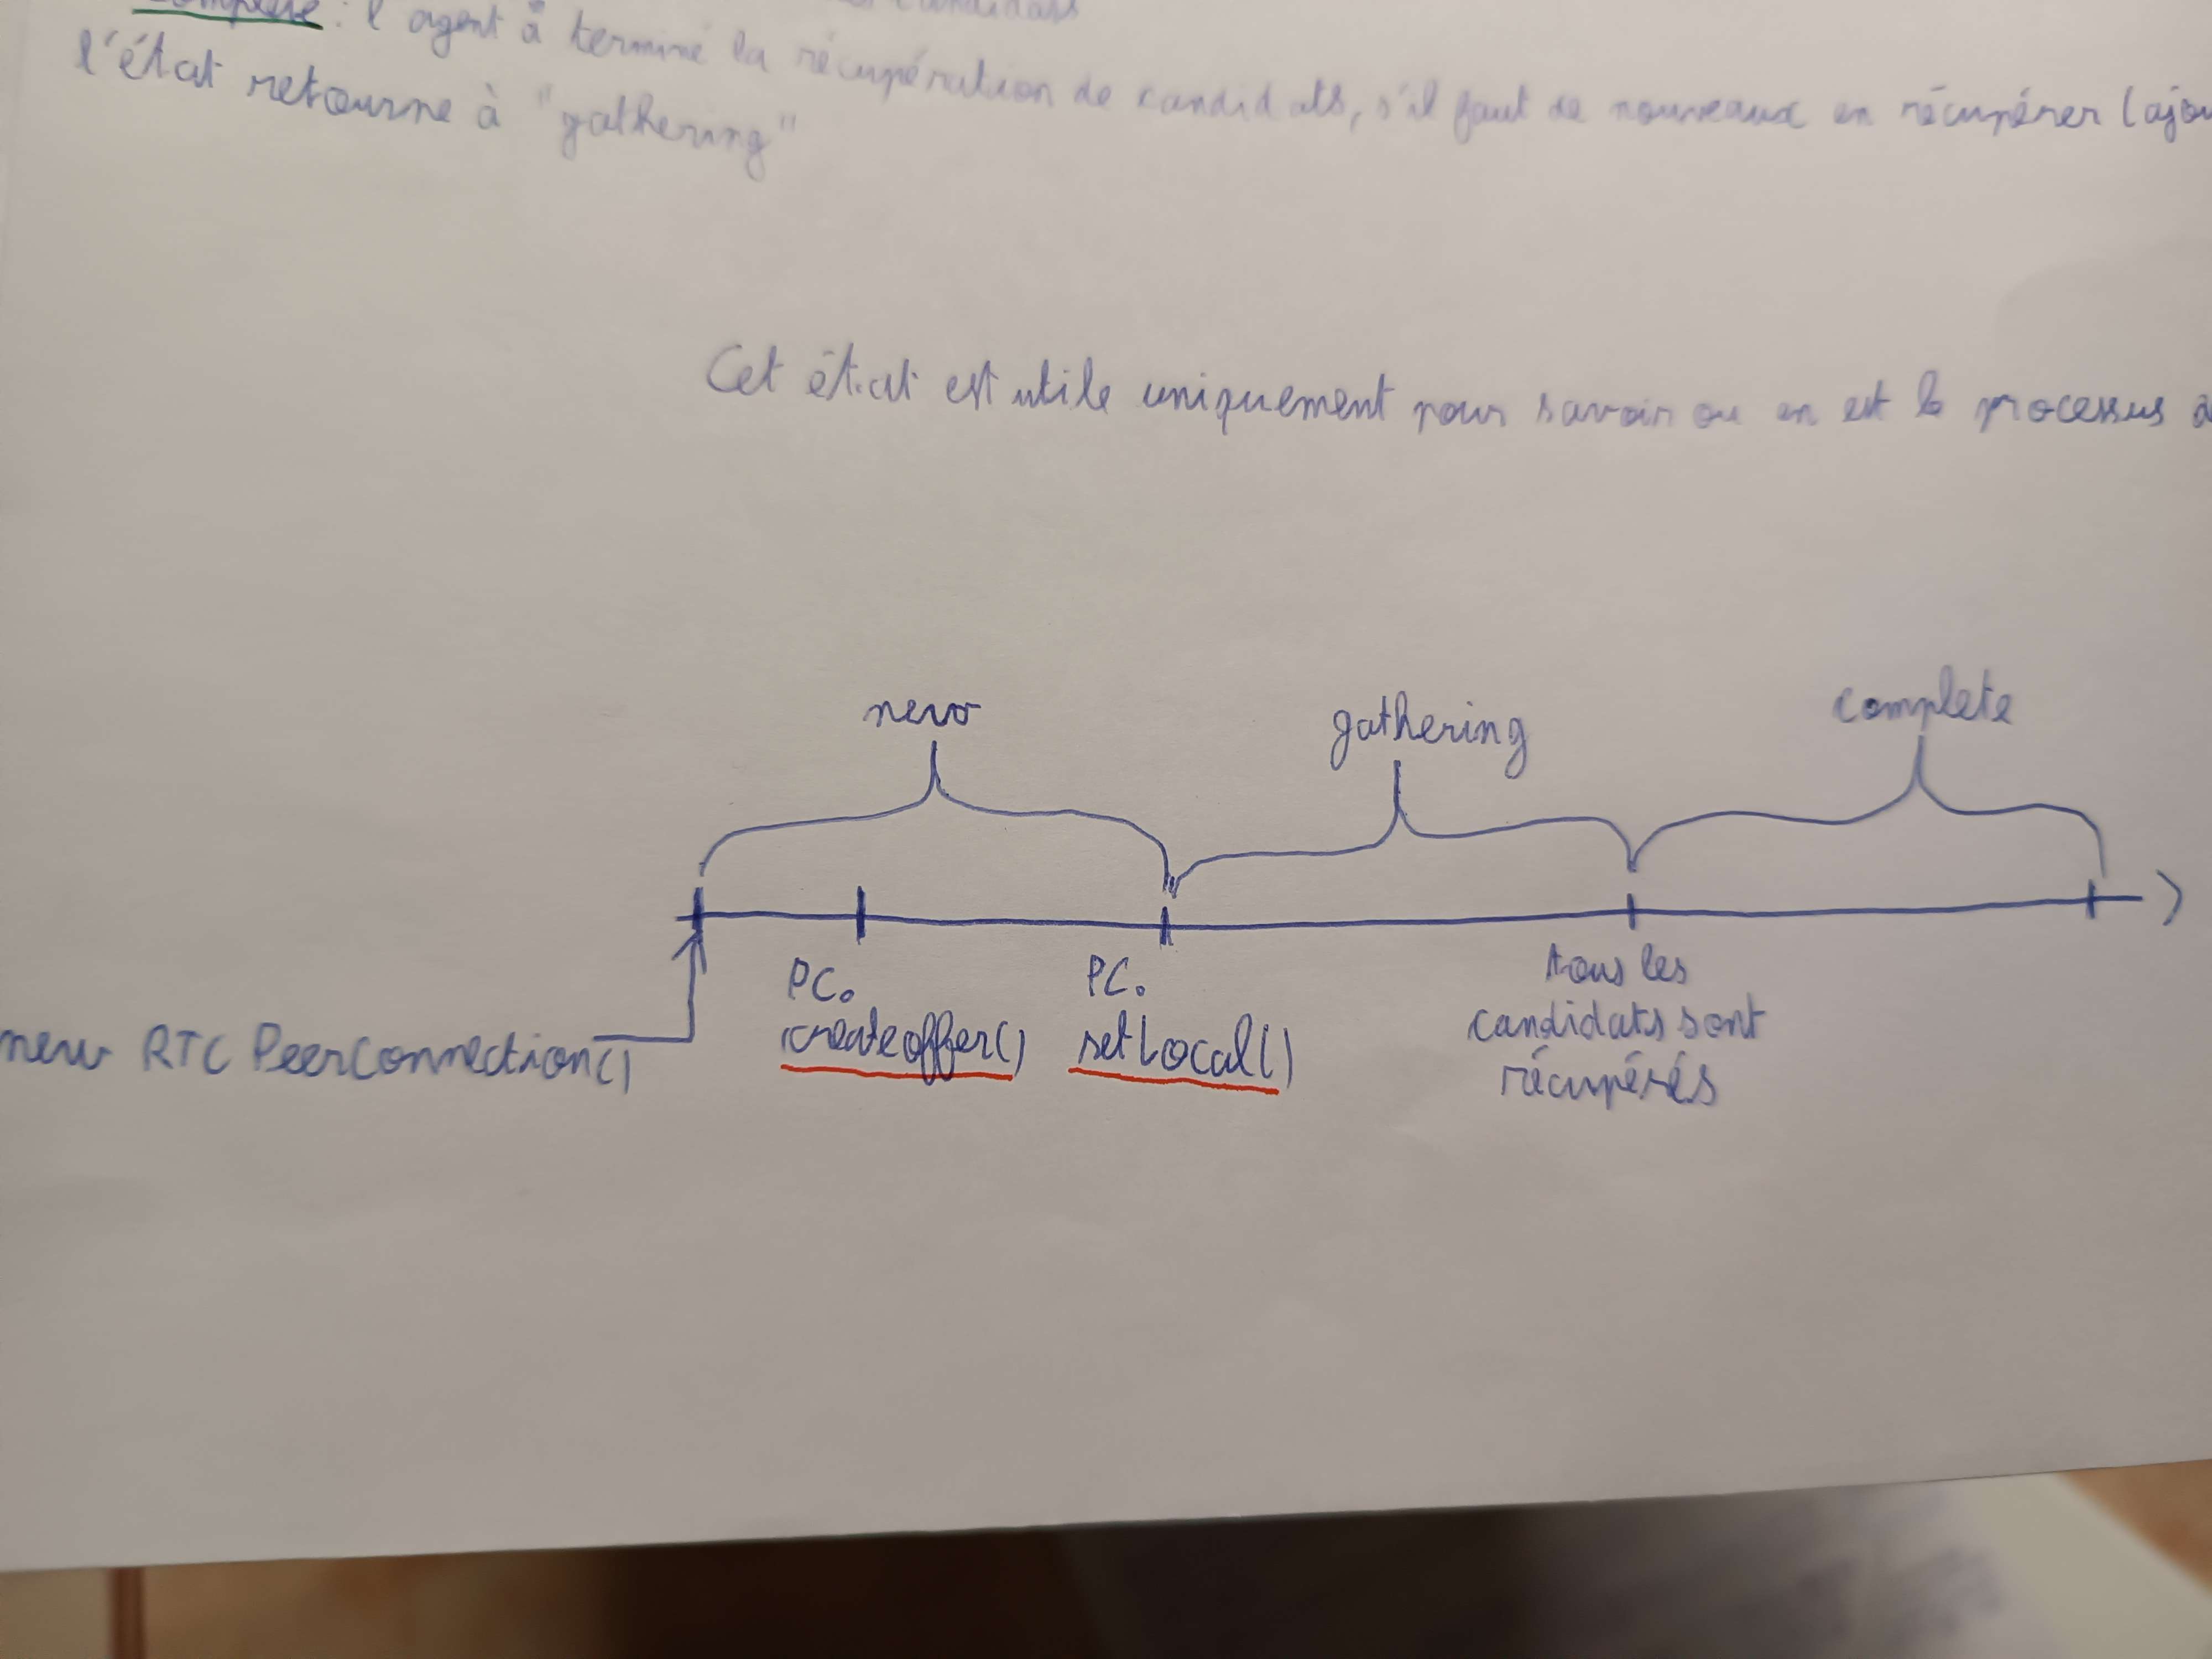 complete : l'agent à terminé la récupération de candidats, s'il faut de nouveaux en récupérer (ajou
l'état retourne à "gathering"
Cet état est utile uniquement pour savoir ou en est le processus
new
gathering
complete
new RTCPeerConnection()
PC.
createoffer()
PC.
setLocal()
tous les
candidats sont
récupérés